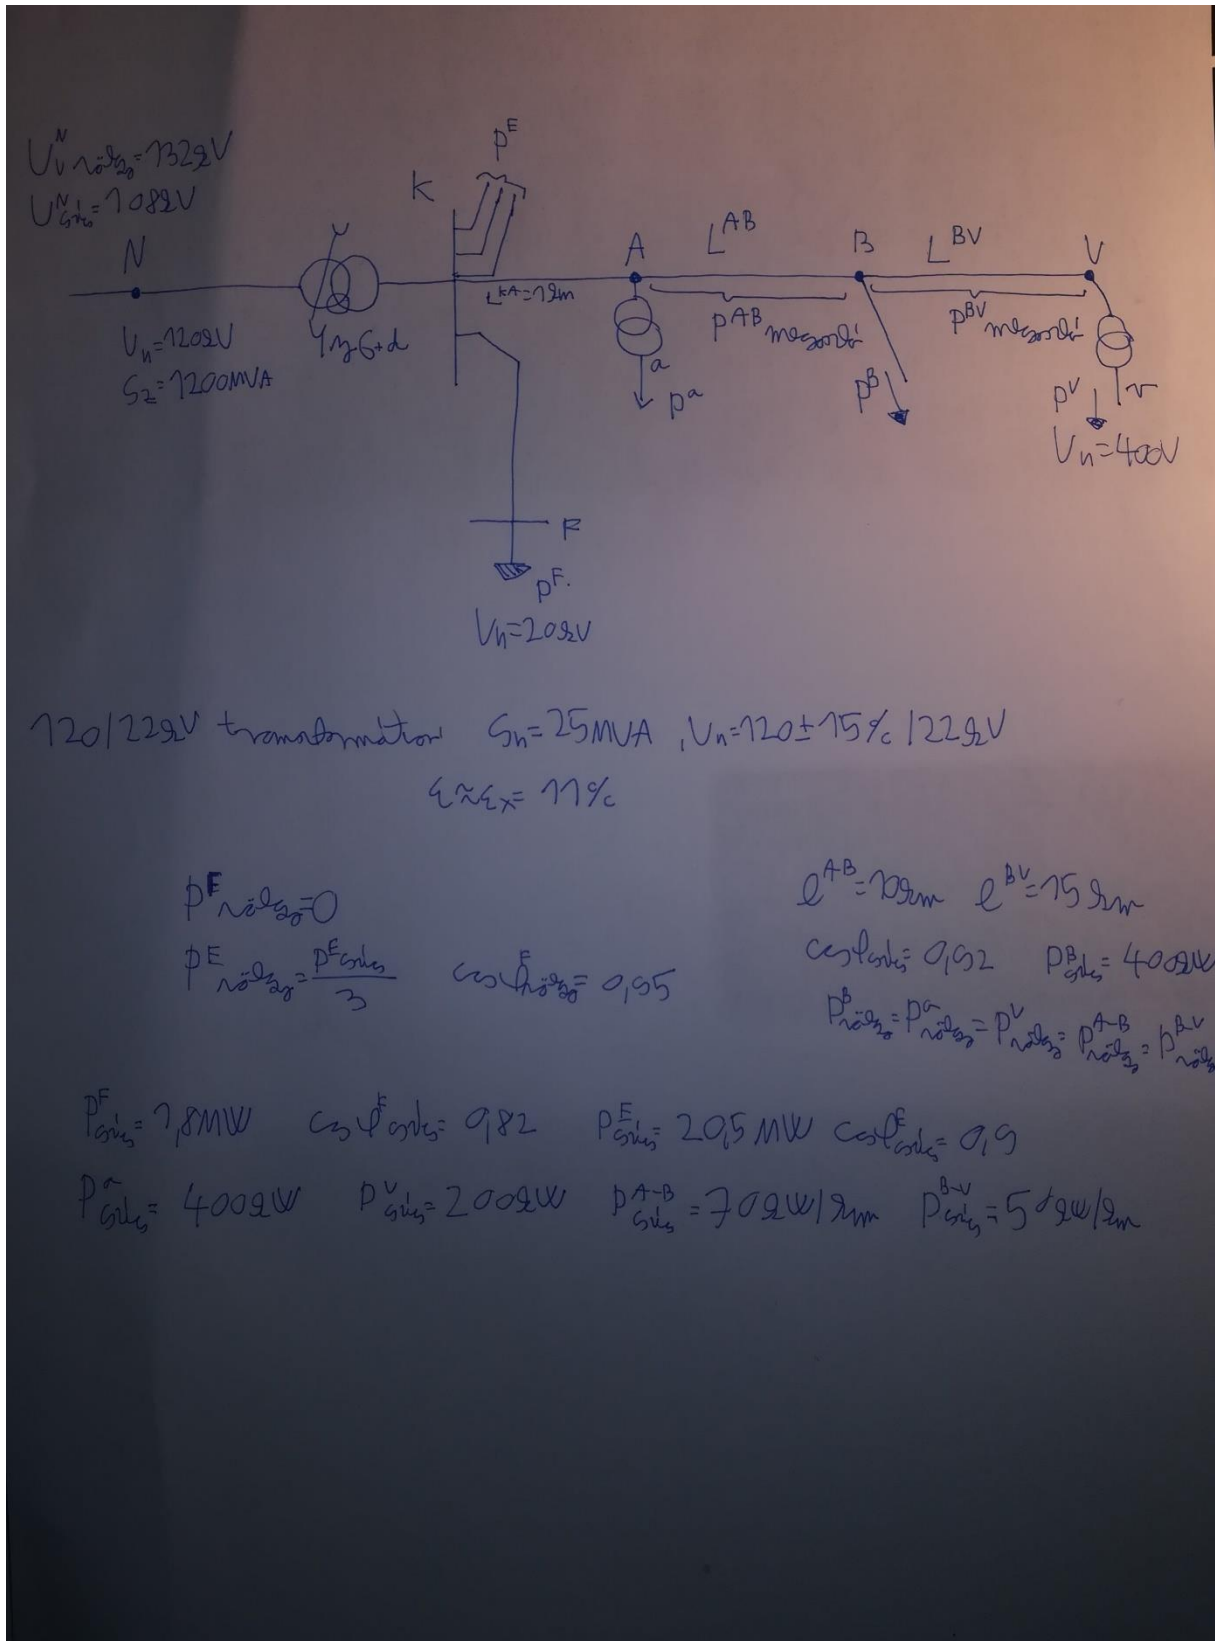 U_v^N völgy=132kV
U^N csúcs=108kV
N
U_n=120kV
S_z=1200MVA
Yy6+d
K
P^E
L^KA=1km
A
L^AB
B
L^BV
V
P^AB megoszló
P^BV megoszló
a
P^a
P^B
P^V
v
U_n=400V
F
P^F.
U_n=20kV
120/22kV transformátor S_n=25MVA, U_n=120±15%/22kV
ε≈ε_x=11%
P^F völgy=0
P^E völgy=P^E csúcs/3 cosφ^E völgy=0,95
l^A-B=10km l^BV=15km
cosφcsúcs=0,92 P^B csúcs=400kW
P^B völgy=P^a völgy=P^V völgy=P^A-B völgy=P^B-V völgy
P^F csúcs=1,8MW cosφ^F csúcs=0,82 P^E csúcs=20,5MW cosφ^E csúcs=0,9
P^a csúcs=400kW P^V csúcs=200kW P^A-B csúcs=70kW/km P^B-V csúcs=50kW/km